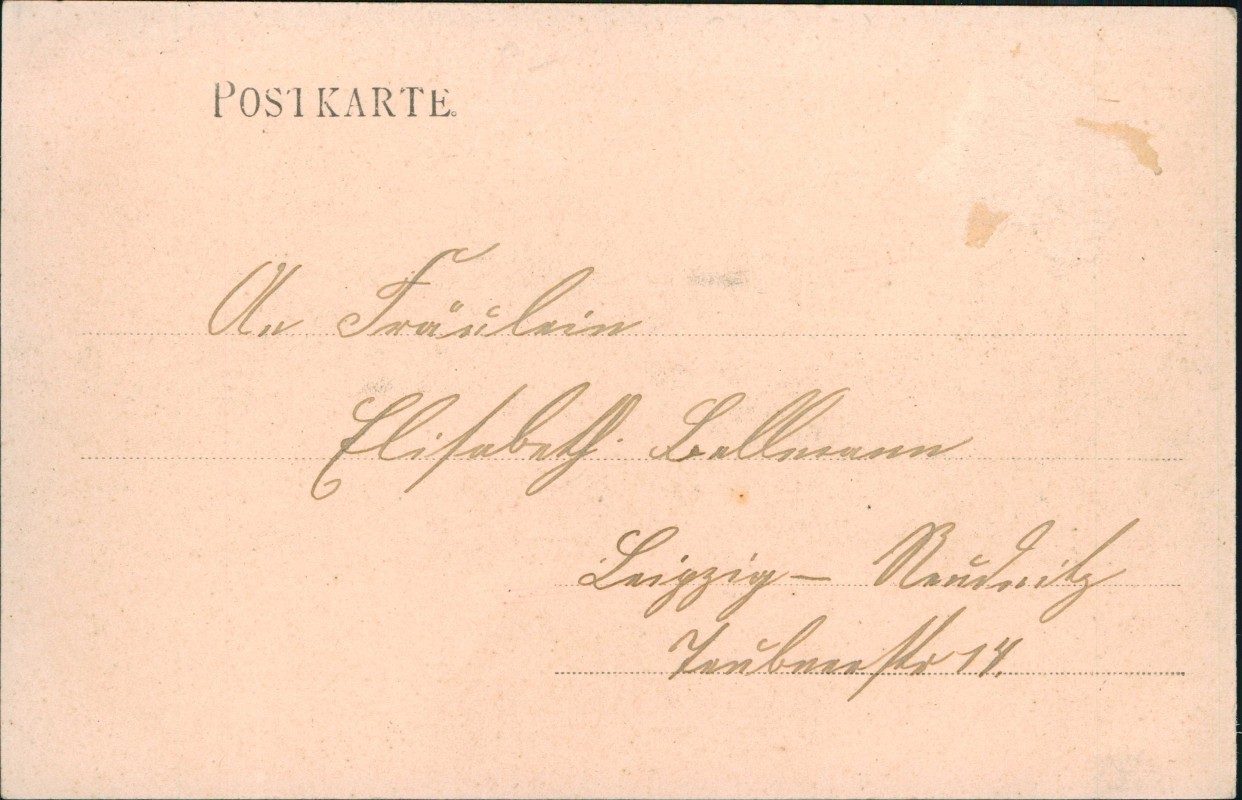 POSTKARTE.
An Fräulein
Elisabeth Bellmann
Leipzig – Reudnitz
Teubnerstr 14.